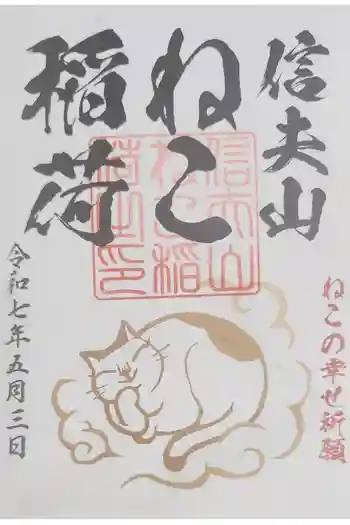 信夫山
ねこ
稲荷
信夫山
ねこ稲
荷社印
ねこの幸せ祈願
令和七年五月三日